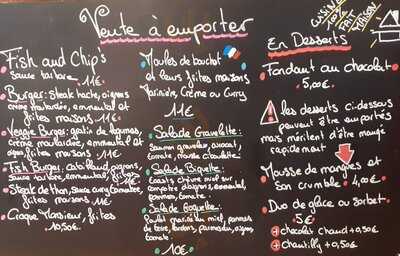 Vente à emporter
CUISINE
100%
FAIT
MAISON
Fish and Chips
sauce tartare 11€
Burger: Steak haché, oignons
crème moutardée, emmental et
frites maisons 11€
Veggie Burger: galette de légumes,
crème moutardée, emmental et
frites maisons 11€
Fish Burger: colin pané, oignons,
sauce tartare, emmental, frites 11€
Steak de thon, sauce curry
frites maisons 11€
Croque Monsieur, frites
10,50€
Moules de bouchot
et leurs frites maisons
Marinière, Crème ou Curry
11€
Salade Gravelette:
Saumon gravelax, avocat,
tomate, salade
Salade Biquette:
Toasts chèvre miel sur
compotée d'oignons, emmental,
pommes, tomate.
Salade Goguette:
Poulet mariné au miel, pommes
de terre, lardons, parmesan, oignons
tomate.
10€
En Desserts
Fondant au chocolat
5,00€
les desserts ci-dessous
peuvent être emportés
mais méritent d'être mangé
rapidement
Mousse de mangues et
son crumble 4,00€
Duo de glace ou sorbet
5€
+ chocolat chaud +0,50€
+ chantilly +0,50€